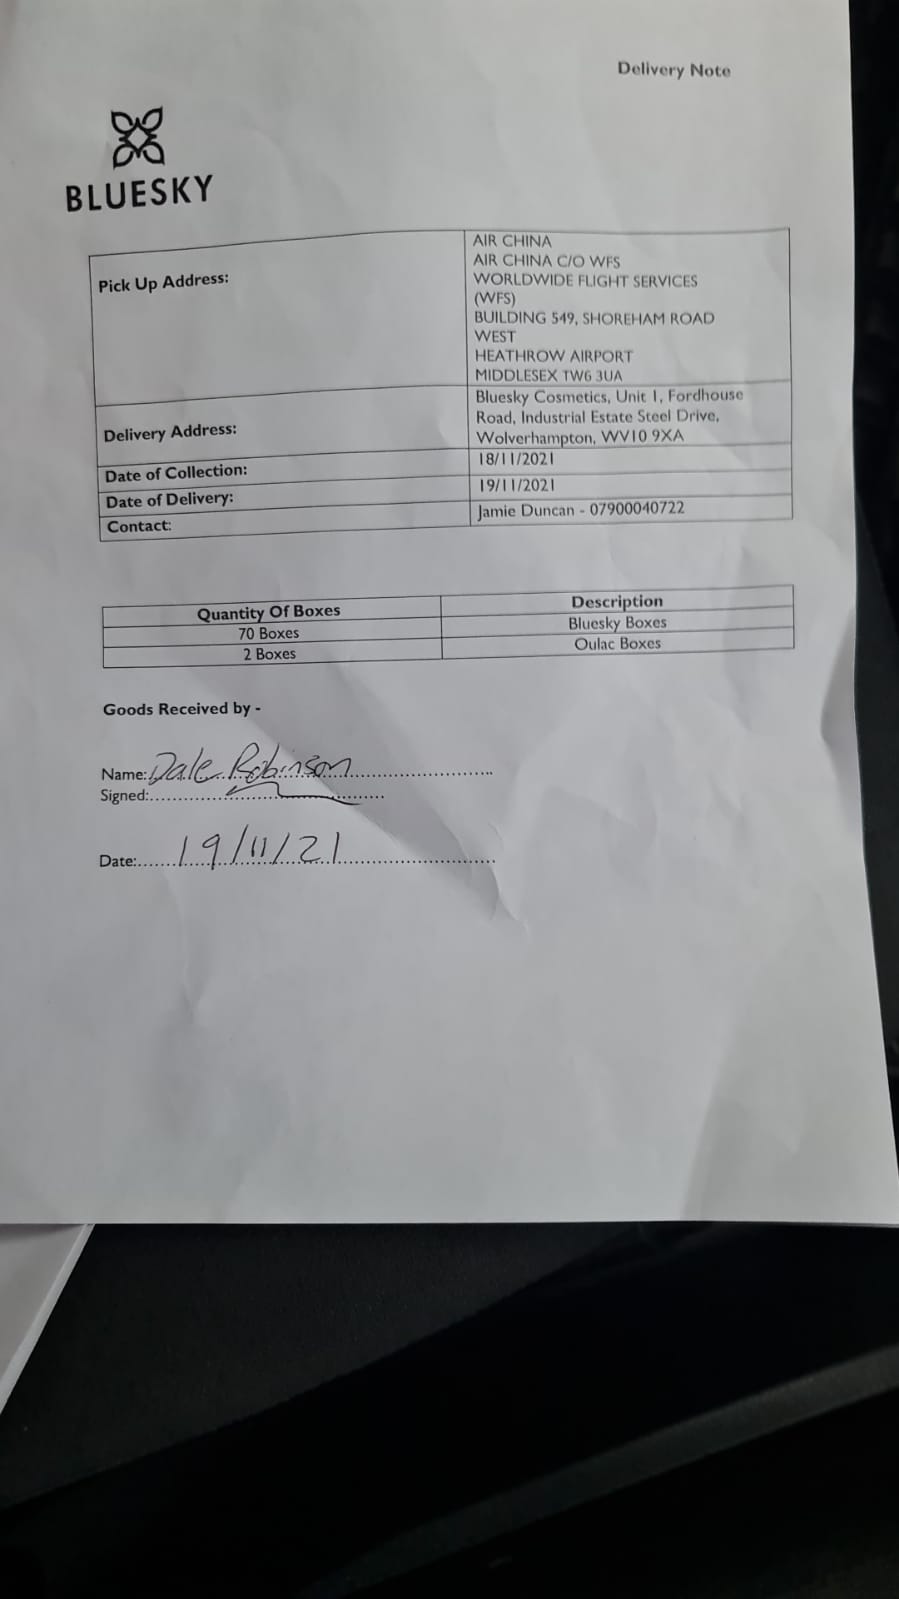 Delivery Note
BLUESKY
Pick Up Address:
AIR CHINA
AIR CHINA C/O WFS
WORLDWIDE FLIGHT SERVICES
(WFS)
BUILDING 549, SHOREHAM ROAD
WEST
HEATHROW AIRPORT
MIDDLESEX TW6 3UA
Delivery Address:
Bluesky Cosmetics, Unit 1, Fordhouse
Road, Industrial Estate Steel Drive,
Wolverhampton, WV10 9XA
Date of Collection:
18/11/2021
Date of Delivery:
19/11/2021
Contact:
Jamie Duncan - 07900040722
Quantity Of Boxes
Description
70 Boxes
Bluesky Boxes
2 Boxes
Oulac Boxes
Goods Received by -
Name: Dale Robinson
Signed:
Date: 19/11/21